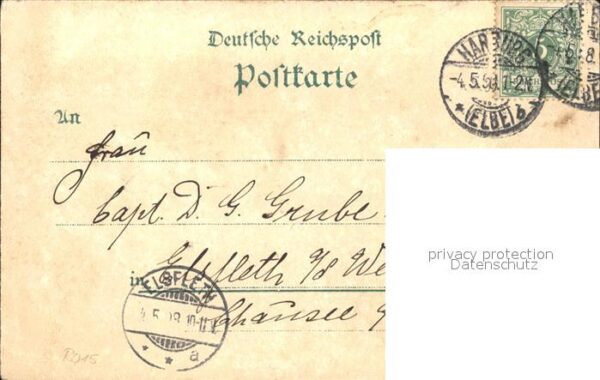 Deutsche Reichspost
Postkarte
HARBURG
-4.5.98.1-2N.
* (ELBE) b *
5
An
Frau
Capt. D. G. Grube
in Elsfleth i/d We
Chausee
ELSFLETH
4.5.98.10-11V.
* * a
privacy protection
Datenschutz
R215